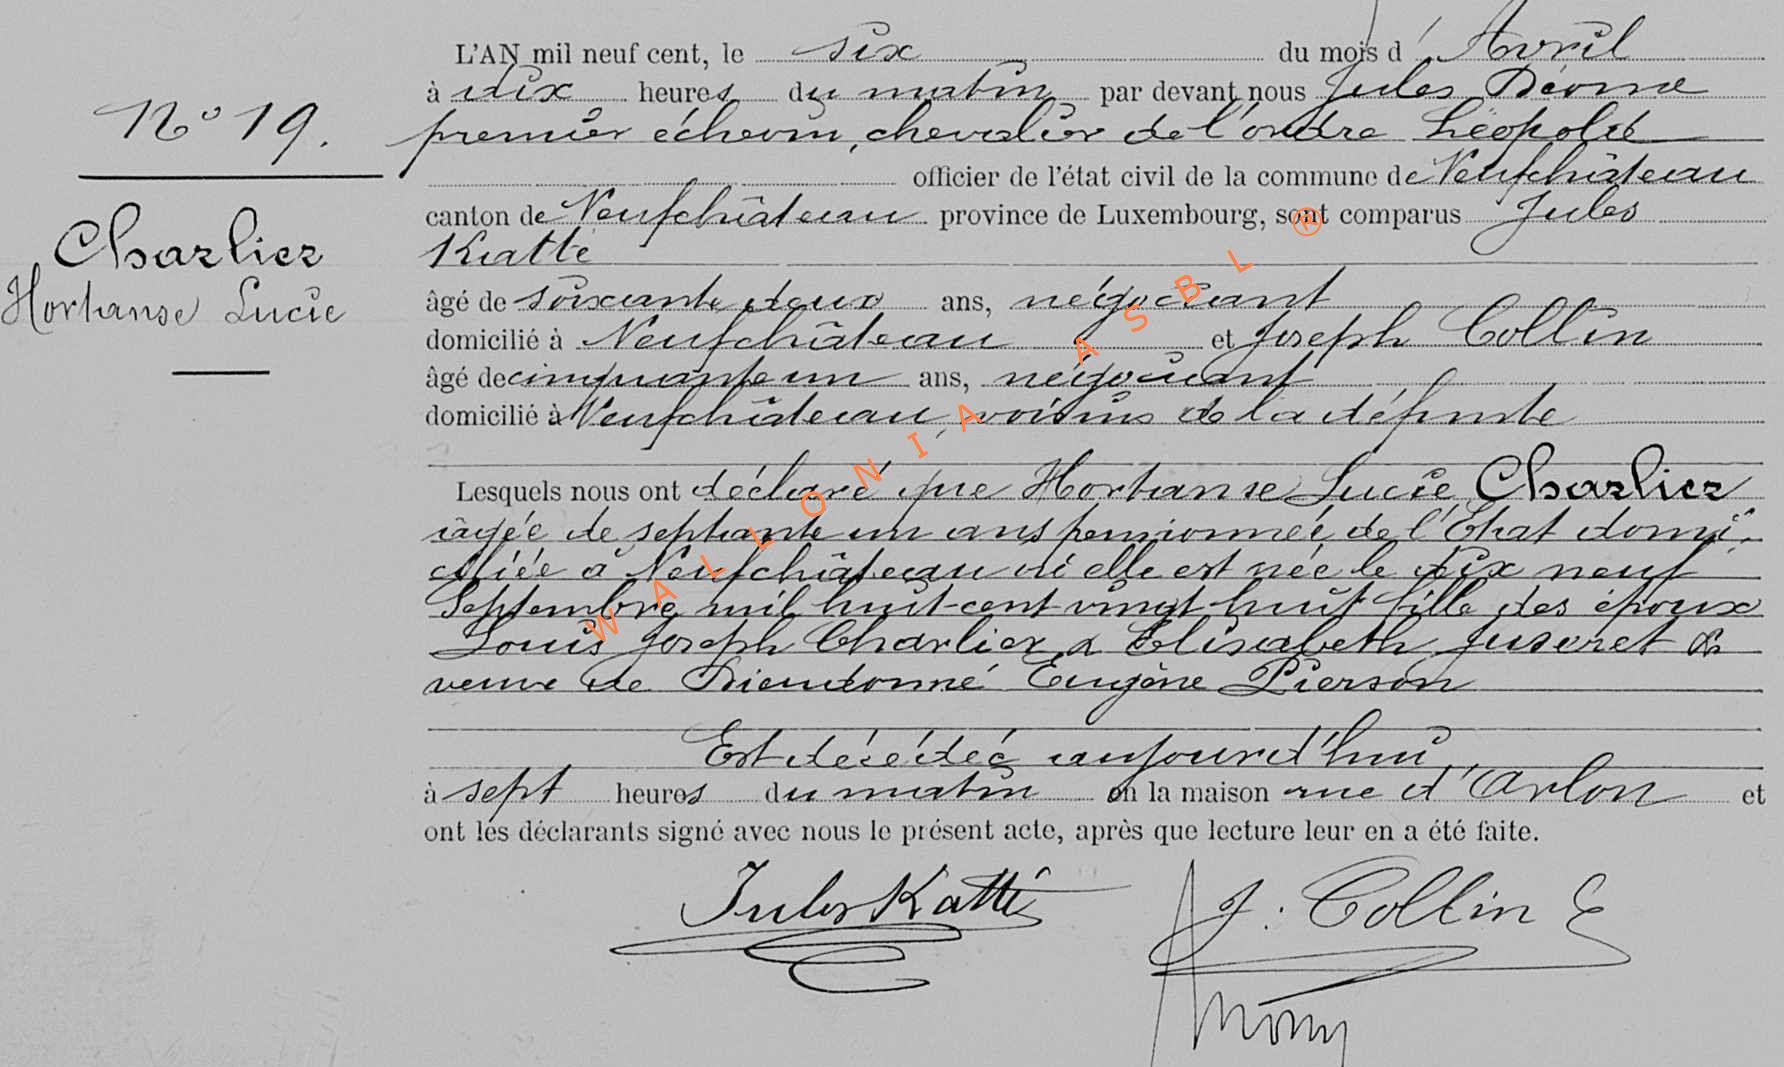 L'AN mil neuf cent, le six du mois d'Avril
à dix heures du matin par devant nous Jules
premier échevin, chevalier de l'ordre Léopold
officier de l'état civil de la commune de Neufchâteau
canton de Neufchâteau province de Luxembourg, sont comparus Jules
Katté
âgé de soixante deux ans, négociant
domicilié à Neufchâteau et Joseph Collin
âgé de cinquante un ans, négociant
domicilié à Neufchâteau, voisins de la défunte
Lesquels nous ont déclaré que Hortanse Lucie Charlier
âgée de septante un ans pensionnée de l'Etat domi
ciliée à Neufchâteau où elle est née le dix neuf
Septembre mil huit-cent vingt-huit fille des époux
Louis Joseph Charlier & Elisabeth Juseret &
veuve de Dieudonné Eugène Pierson
Est décédée aujourd'hui
à sept heures du matin en la maison rue d'Arlon et
ont les déclarants signé avec nous le présent acte, après que lecture leur en a été faite.
Jules Katté
J. Collin
No 19.
Charlier
Hortanse Lucie
WALLONIA ASBL ®